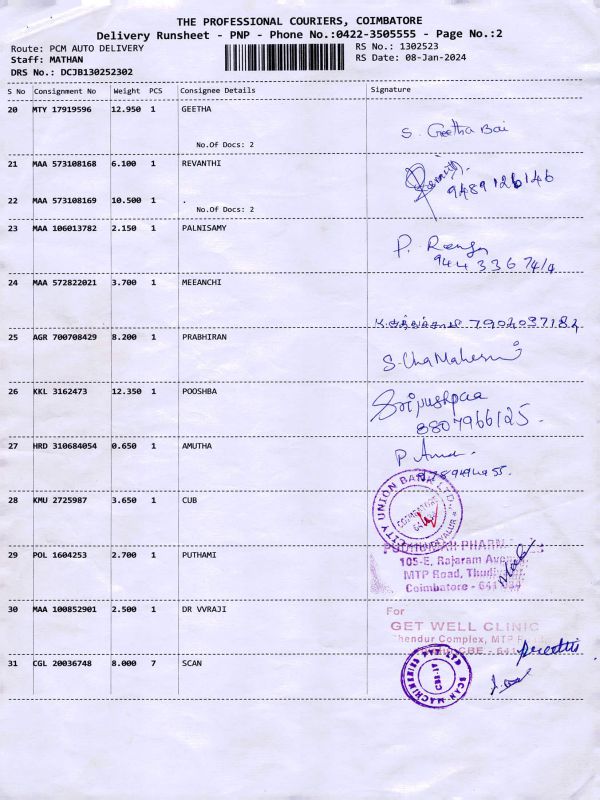 THE PROFESSIONAL COURIERS, COIMBATORE
Delivery Runsheet - PNP - Phone No.:0422-3505555 - Page No.:2
Route: PCM AUTO DELIVERY
Staff: MATHAN
DRS No.: DCJB130252302
RS No.: 1302523
RS Date: 08-Jan-2024
S No Consignment No Weight PCS Consignee Details Signature
20 MTY 17919596 12.950 1 GEETHA
No.Of Docs: 2
S. Geetha Bai
21 MAA 573108168 6.100 1 REVANTHI
9489126146
22 MAA 573108169 10.500 1 .
No.Of Docs: 2
23 MAA 106013782 2.150 1 PALNISAMY
P.
24 MAA 572822021 3.700 1 MEEANCHI
25 AGR 700708429 8.200 1 PRABHIRAN
26 KKL 3162473 12.350 1 POOSHBA
Sripushpaa
8807966125.
27 HRD 310684054 0.650 1 AMUTHA
P
28 KMU 2725987 3.650 1 CUB
CITY UNION BANK LTD.
29 POL 1604253 2.700 1 PUTHAMI
105-E, Rajaram
MTP Road,
Coimbatore - 641
30 MAA 100852901 2.500 1 DR VVRAJI
For
GET WELL CLINIC
Complex, MTP
CBE - 641
31 CGL 20036748 8.000 7 SCAN
SCAN MACHINERIES PVT LTD